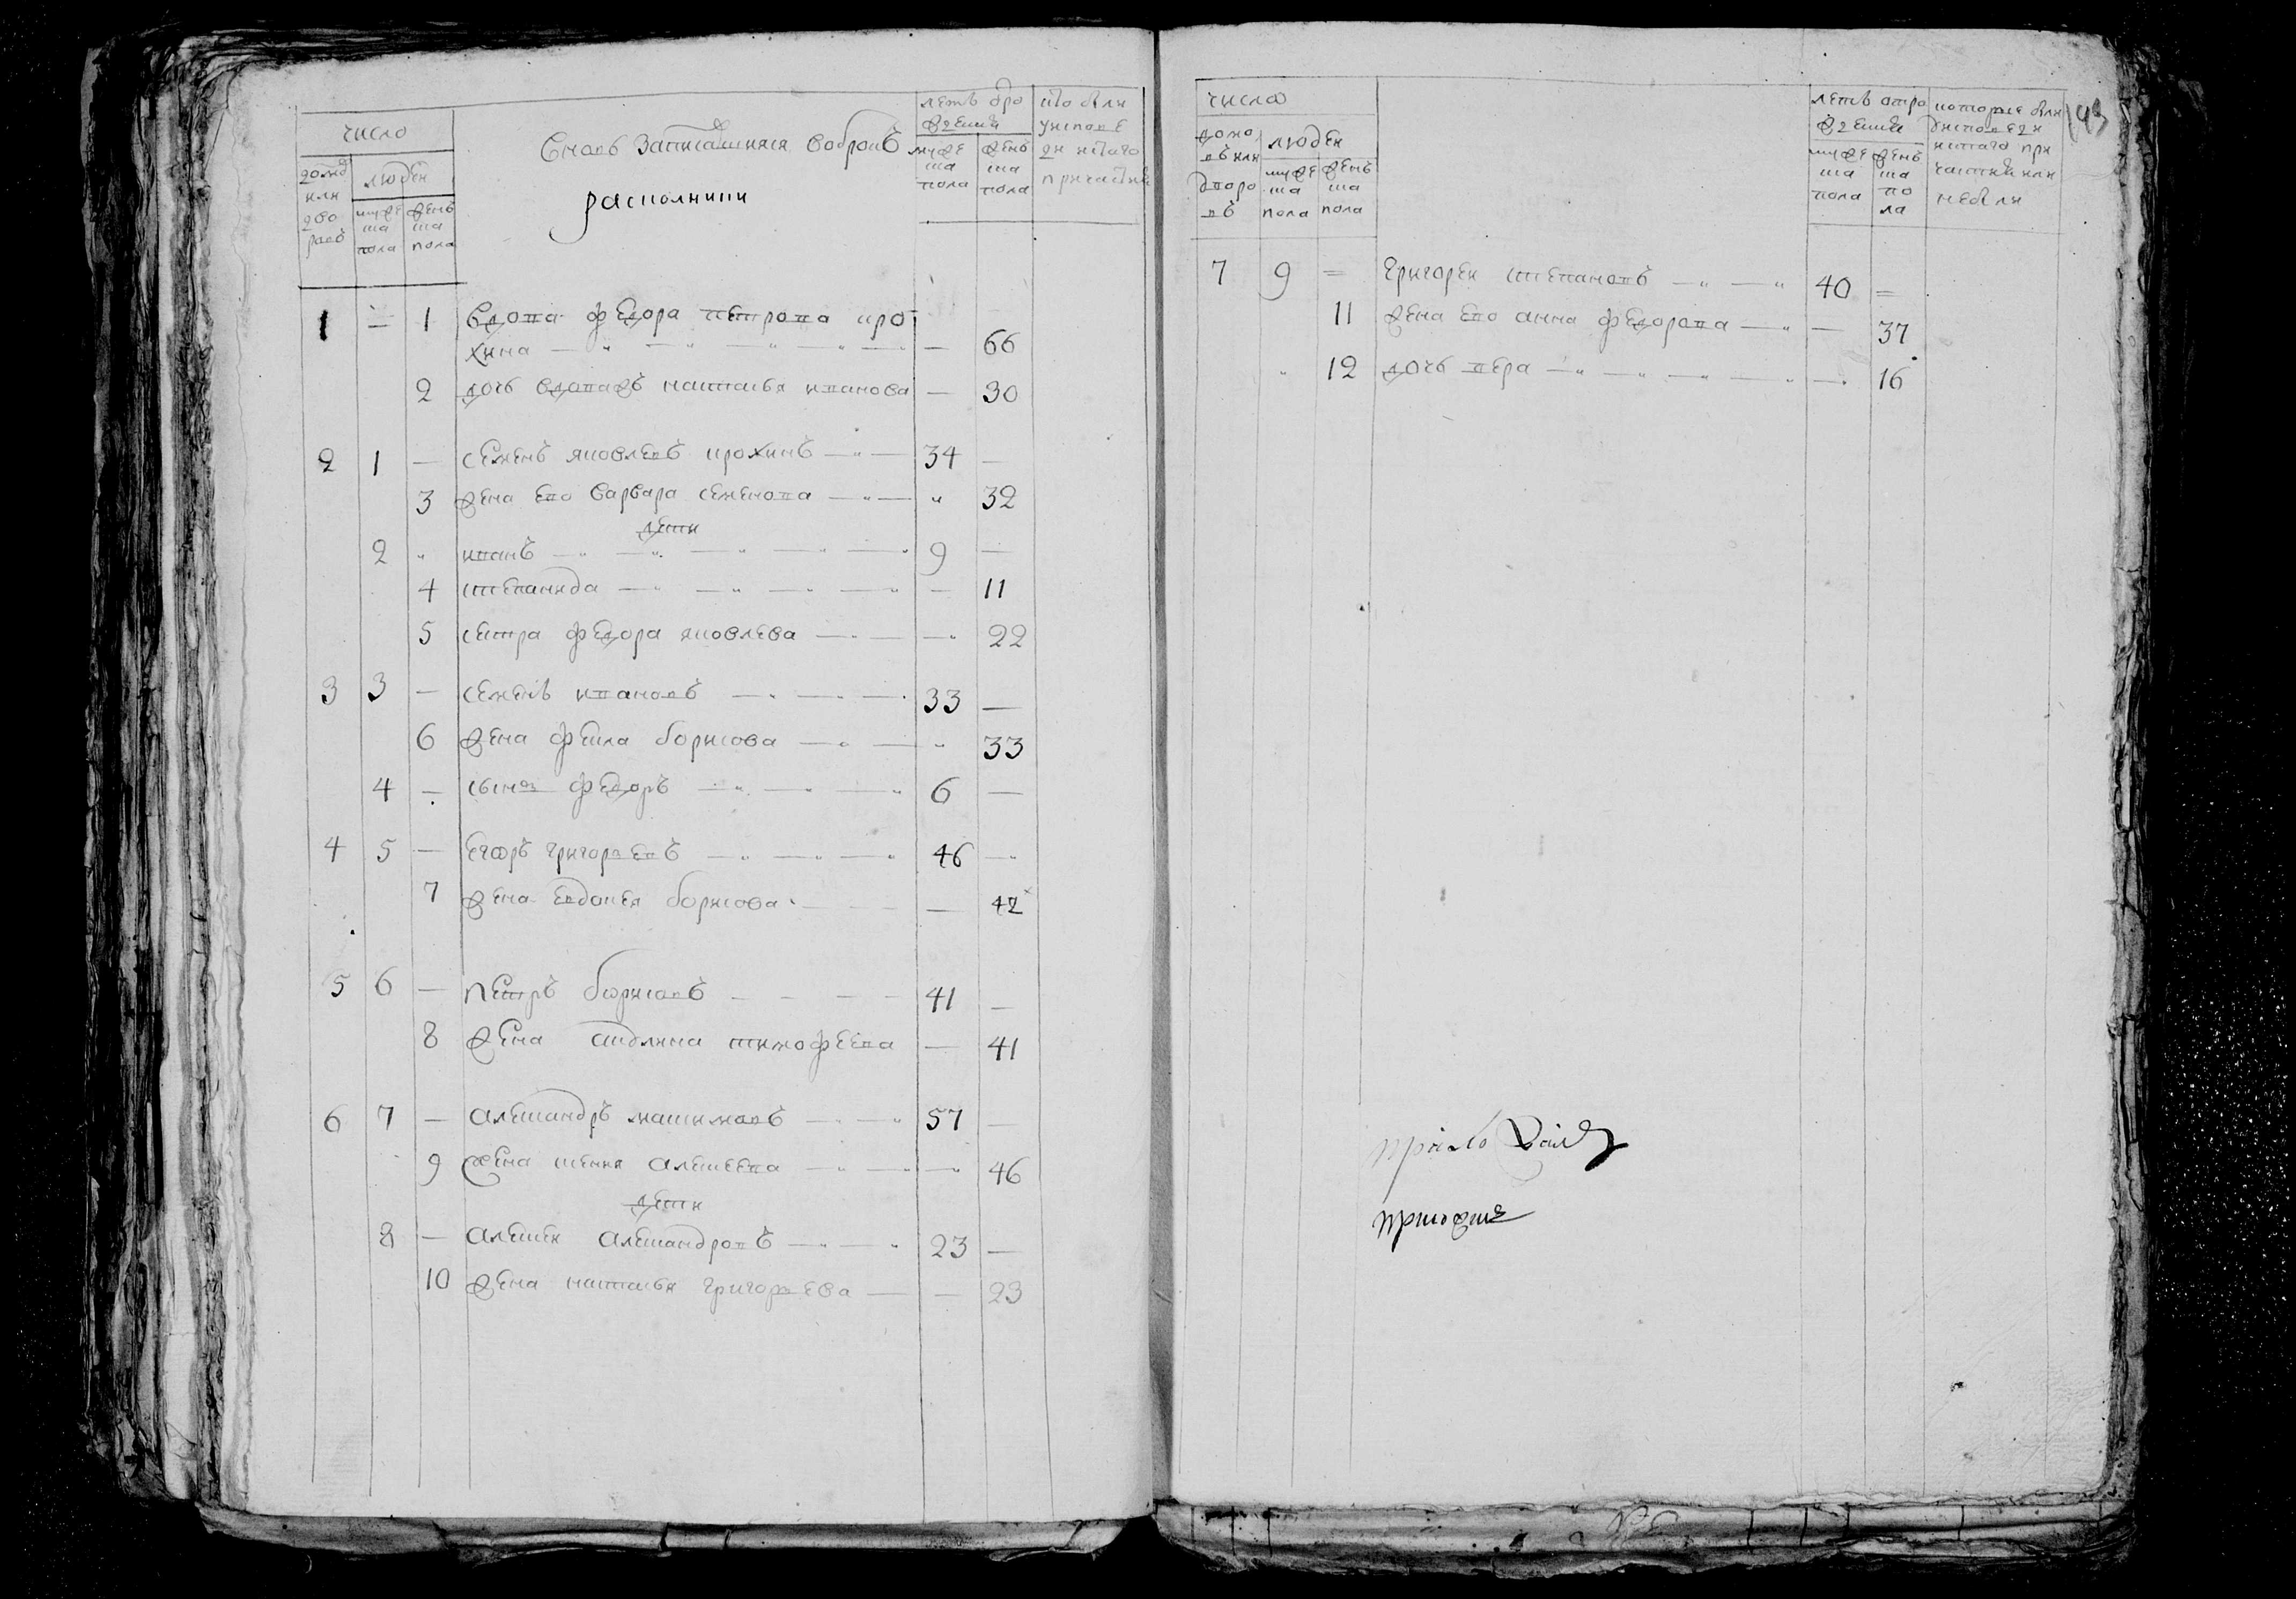 число
домовъ или дворовъ
людей
мужеска пола
женска пола
Вновь записавшияся воброкъ
раскольники
летъ отрождения
мужеска пола
женска пола
кто были
у исповеди и святаго
причастия
1 = 1 вдова федора петрова про
хина — " — " — " — " — — 66
2 дочь вдоважъ наталья иванова — 30
2 1 — семенъ яковлевъ прохинъ — " — 34 —
3 жена ево варвара семенова — " — " 32
дети
2 " иванъ — " — " — " — " — " 9 —
4 степанида — " — " — " — " — 11
5 сестра федора яковлева — " — — " 22
3 3 — семенъ ивановъ — " — " — " 33 —
6 жена фекла борисова — " — " 33
4 — сынъ федоръ — " — " — " 6 —
4 5 — егоръ григорьевъ — " — " — " 46 — "
7 жена евдокея борисова — — — — 42
5 6 — петръ борисовъ — — — — 41 —
8 жена акулина тимофеева — 41
6 7 — александръ максимовъ — " — " 57 —
9 жена ксения алексеева — " — " — " 46
дети
8 — алексей александровъ — " — " 23 —
10 жена наталья григорьева — — 23
число
домовъ или дворовъ
людей
мужеска пола
женска пола
летъ отрождения
мужеска пола
женска пола
которые были
у исповеди и
святаго при
частия или
не были
143
7 9 = григорей степановъ — " — " 40 =
11 жена ево анна федорова — " — 37
" 12 дочь вера — " — " — " — " — " 16